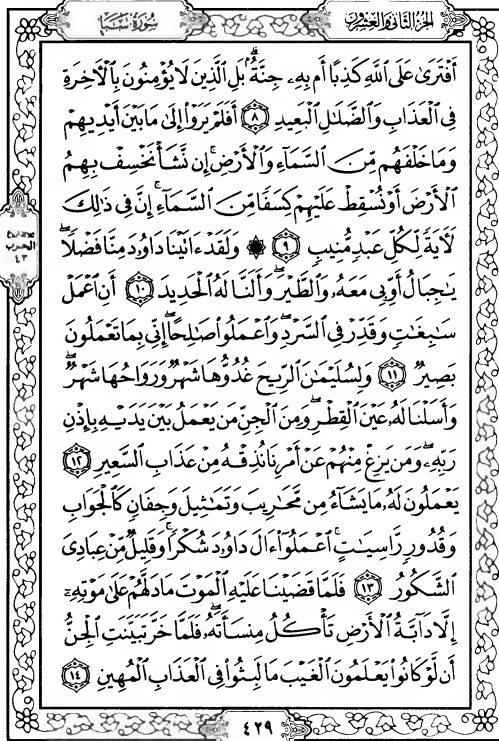 سُورَةُ سَبَإٍ
الجُزْءُ الثَّانِي وَالعِشْرُونَ
أَفْتَرَىٰ عَلَى ٱللَّهِ كَذِبًا أَم بِهِۦ جِنَّةٌۢ بَلِ ٱلَّذِينَ لَا يُؤْمِنُونَ بِٱلْأَخِرَةِ
فِي ٱلْعَذَابِ وَٱلضَّلَٰلِ ٱلْبَعِيدِ ٨ أَفَلَمْ يَرَوْا۟ إِلَىٰ مَا بَيْنَ أَيْدِيهِمْ
وَمَا خَلْفَهُم مِّنَ ٱلسَّمَآءِ وَٱلْأَرْضِ ۚ إِن نَّشَأْ نَخْسِفْ بِهِمُ
ٱلْأَرْضَ أَوْ نُسْقِطْ عَلَيْهِمْ كِسَفًا مِّنَ ٱلسَّمَآءِ ۚ إِنَّ فِي ذَٰلِكَ
لَأَيَةً لِّكُلِّ عَبْدٍ مُّنِيبٍ ٩ ۞ وَلَقَدْ ءَاتَيْنَا دَاوُۥدَ مِنَّا فَضْلًا ۖ
يَٰجِبَالُ أَوِّبِي مَعَهُۥ وَٱلطَّيْرَ ۖ وَأَلَنَّا لَهُ ٱلْحَدِيدَ ١٠ أَنِ ٱعْمَلْ
سَٰبِغَٰتٍ وَقَدِّرْ فِي ٱلسَّرْدِ ۖ وَٱعْمَلُوا۟ صَٰلِحًا ۖ إِنِّي بِمَا تَعْمَلُونَ
بَصِيرٌ ١١ وَلِسُلَيْمَٰنَ ٱلرِّيحَ غُدُوُّهَا شَهْرٌ وَرَوَاحُهَا شَهْرٌ ۖ
وَأَسَلْنَا لَهُۥ عَيْنَ ٱلْقِطْرِ ۖ وَمِنَ ٱلْجِنِّ مَن يَعْمَلُ بَيْنَ يَدَيْهِ بِإِذْنِ
رَبِّهِۦ ۖ وَمَن يَزِغْ مِنْهُمْ عَنْ أَمْرِنَا نُذِقْهُ مِنْ عَذَابِ ٱلسَّعِيرِ ١٢
يَعْمَلُونَ لَهُۥ مَا يَشَآءُ مِن مَّحَٰرِيبَ وَتَمَٰثِيلَ وَجِفَانٍ كَٱلْجَوَابِ
وَقُدُورٍ رَّاسِيَٰتٍ ۚ ٱعْمَلُوٓا۟ ءَالَ دَاوُۥدَ شُكْرًا ۚ وَقَلِيلٌ مِّنْ عِبَادِيَ
ٱلشَّكُورُ ١٣ فَلَمَّا قَضَيْنَا عَلَيْهِ ٱلْمَوْتَ مَا دَلَّهُمْ عَلَىٰ مَوْتِهِۦٓ
إِلَّا دَآبَّةُ ٱلْأَرْضِ تَأْكُلُ مِنسَأَتَهُۥ ۖ فَلَمَّا خَرَّ تَبَيَّنَتِ ٱلْجِنُّ
أَن لَّوْ كَانُوا۟ يَعْلَمُونَ ٱلْغَيْبَ مَا لَبِثُوا۟ فِي ٱلْعَذَابِ ٱلْمُهِينِ ١٤
الحزب
٤٣
٤٢٩